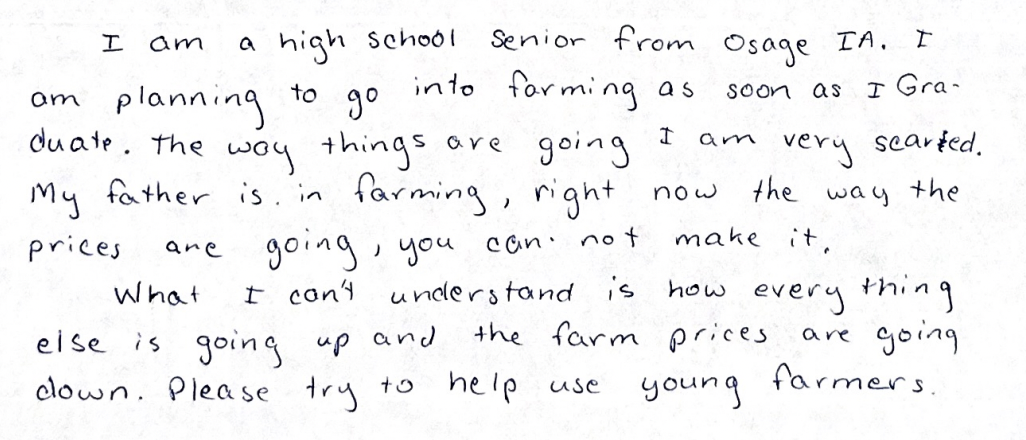 I am a high school Senior from Osage IA. I
am planning to go into farming as soon as I Gra-
duate. The way things are going I am very scarted.
My father is. in farming, right now the way the
prices are going, you can not make it.
What I can't understand is how every thing
else is going up and the farm prices are going
down. Please try to help use young farmers.